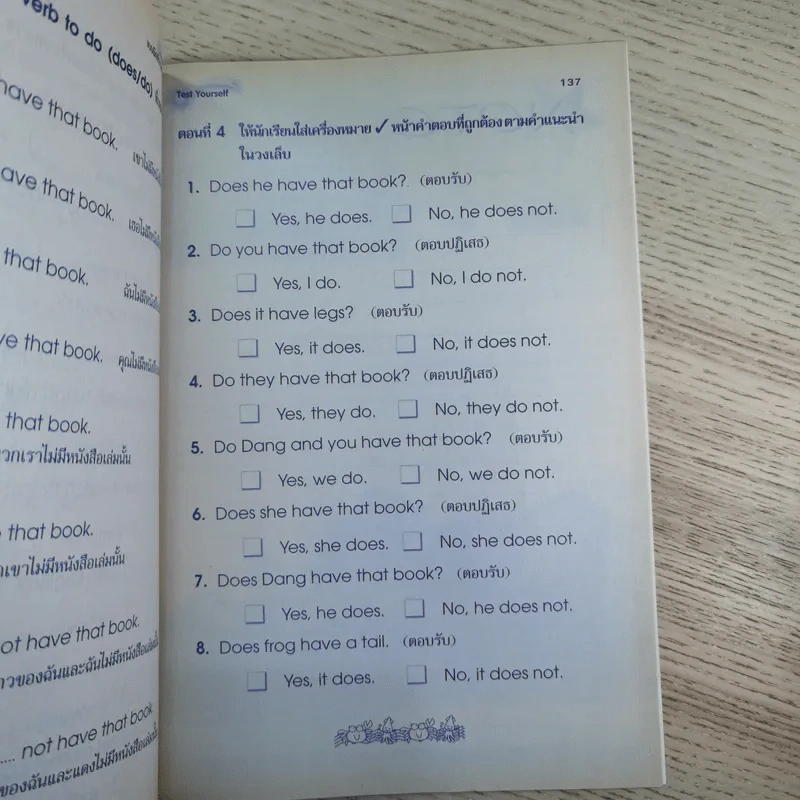 verb to do (does/do)
have that book.
have that book.
that book.
have that book.
that book.
พวกเราไม่มีหนังสือเล่มนั้น
that book.
เขาไม่มีหนังสือเล่มนั้น
not have that book.
ของฉันและฉันไม่มีหนังสือเล่มนั้น
.... not have that book
ของฉันและแดงไม่มีหนังสือเล่มนั้น
Test Yourself
137
ตอนที่ 4 ให้นักเรียนใส่เครื่องหมาย ✓ หน้าคำตอบที่ถูกต้อง ตามคำแนะนำ
ในวงเล็บ
1. Does he have that book? (ตอบรับ)
Yes, he does. No, he does not.
2. Do you have that book? (ตอบปฏิเสธ)
Yes, I do. No, I do not.
3. Does it have legs? (ตอบรับ)
Yes, it does. No, it does not.
4. Do they have that book? (ตอบปฏิเสธ)
Yes, they do. No, they do not.
5. Do Dang and you have that book? (ตอบรับ)
Yes, we do. No, we do not.
6. Does she have that book? (ตอบปฏิเสธ)
Yes, she does. No, she does not.
7. Does Dang have that book? (ตอบรับ)
Yes, he does. No, he does not.
8. Does frog have a tail. (ตอบรับ)
Yes, it does. No, it does not.